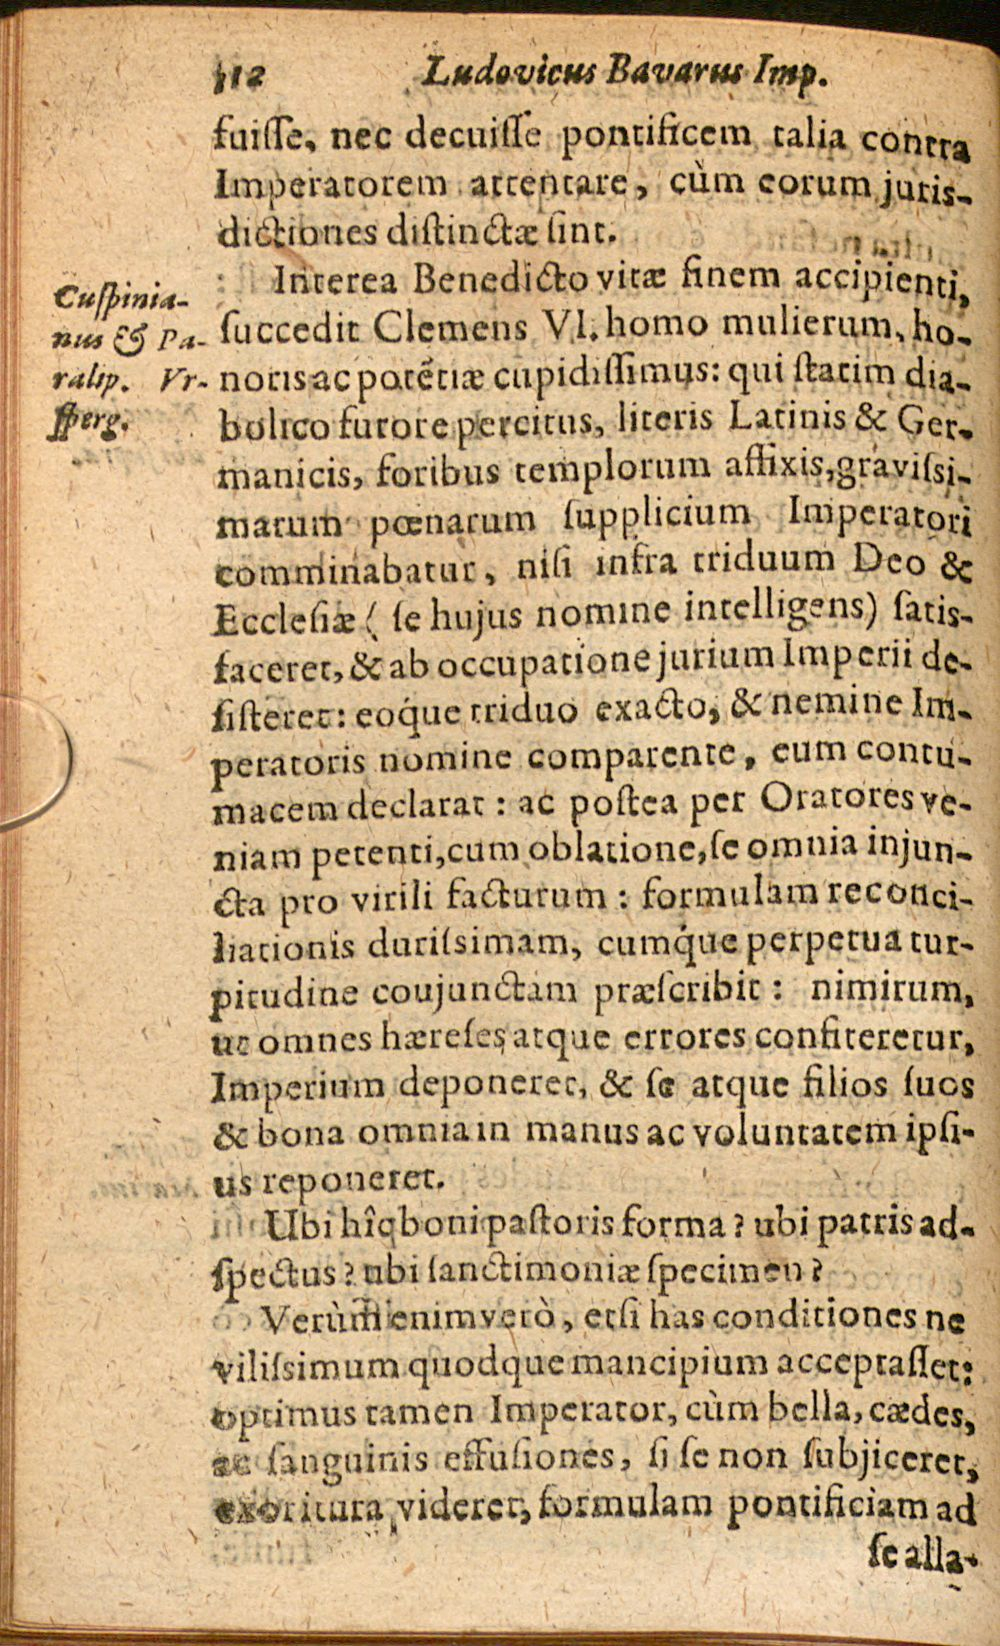 112 Ludovicus Bavarus Imp.
fuiſſe, nec decuiſſe pontificem talia contra
Imperatorem attentare, cùm eorum juris-
dictiones diſtinctæ ſint.
Interea Benedicto vitæ finem accipienti,
ſuccedit Clemens VI. homo mulierum, ho-
noris ac potētiæ cupidiſſimus: qui ſtatim dia-
bolico furore percitus, literis Latinis & Ger-
manicis, foribus templorum affixis, graviſsi-
marum pœnarum ſupplicium Imperatori
comminabatur, niſi infra triduum Deo &
Eccleſiæ (ſe hujus nomine intelligens) ſatis-
faceret, & ab occupatione jurium Imperii de-
ſiſteret: eoq́ue triduo exacto, & nemine Im-
peratoris nomine comparente, eum contu-
macem declarat: ac poſtea per Oratores ve-
niam petenti, cum oblatione, ſe omnia injun-
cta pro virili facturum: formulam reconci-
liationis duriſsimam, cumq́ue perpetua tur-
pitudine coujunctam præſcribit: nimirum,
ut omnes hæreſes atque errores confiteretur,
Imperium deponeret, & ſe atque filios ſuos
& bona omnia in manus ac voluntatem ipſi-
us reponeret.
Ubi hîc boni paſtoris forma? ubi patris ad-
ſpectus? ubi ſanctimoniæ ſpecimen?
Verùm enimverò, etſi has conditiones ne
viliſsimum quodque mancipium acceptaſſet:
optimus tamen Imperator, cùm bella, cædes,
ac ſanguinis effuſiones, ſi ſe non ſubjiceret,
exoritura videret, formulam pontificiam ad
ſe alla-
Cuſpinia-
nus & Pa-
ralip. Vr-
ſperg.